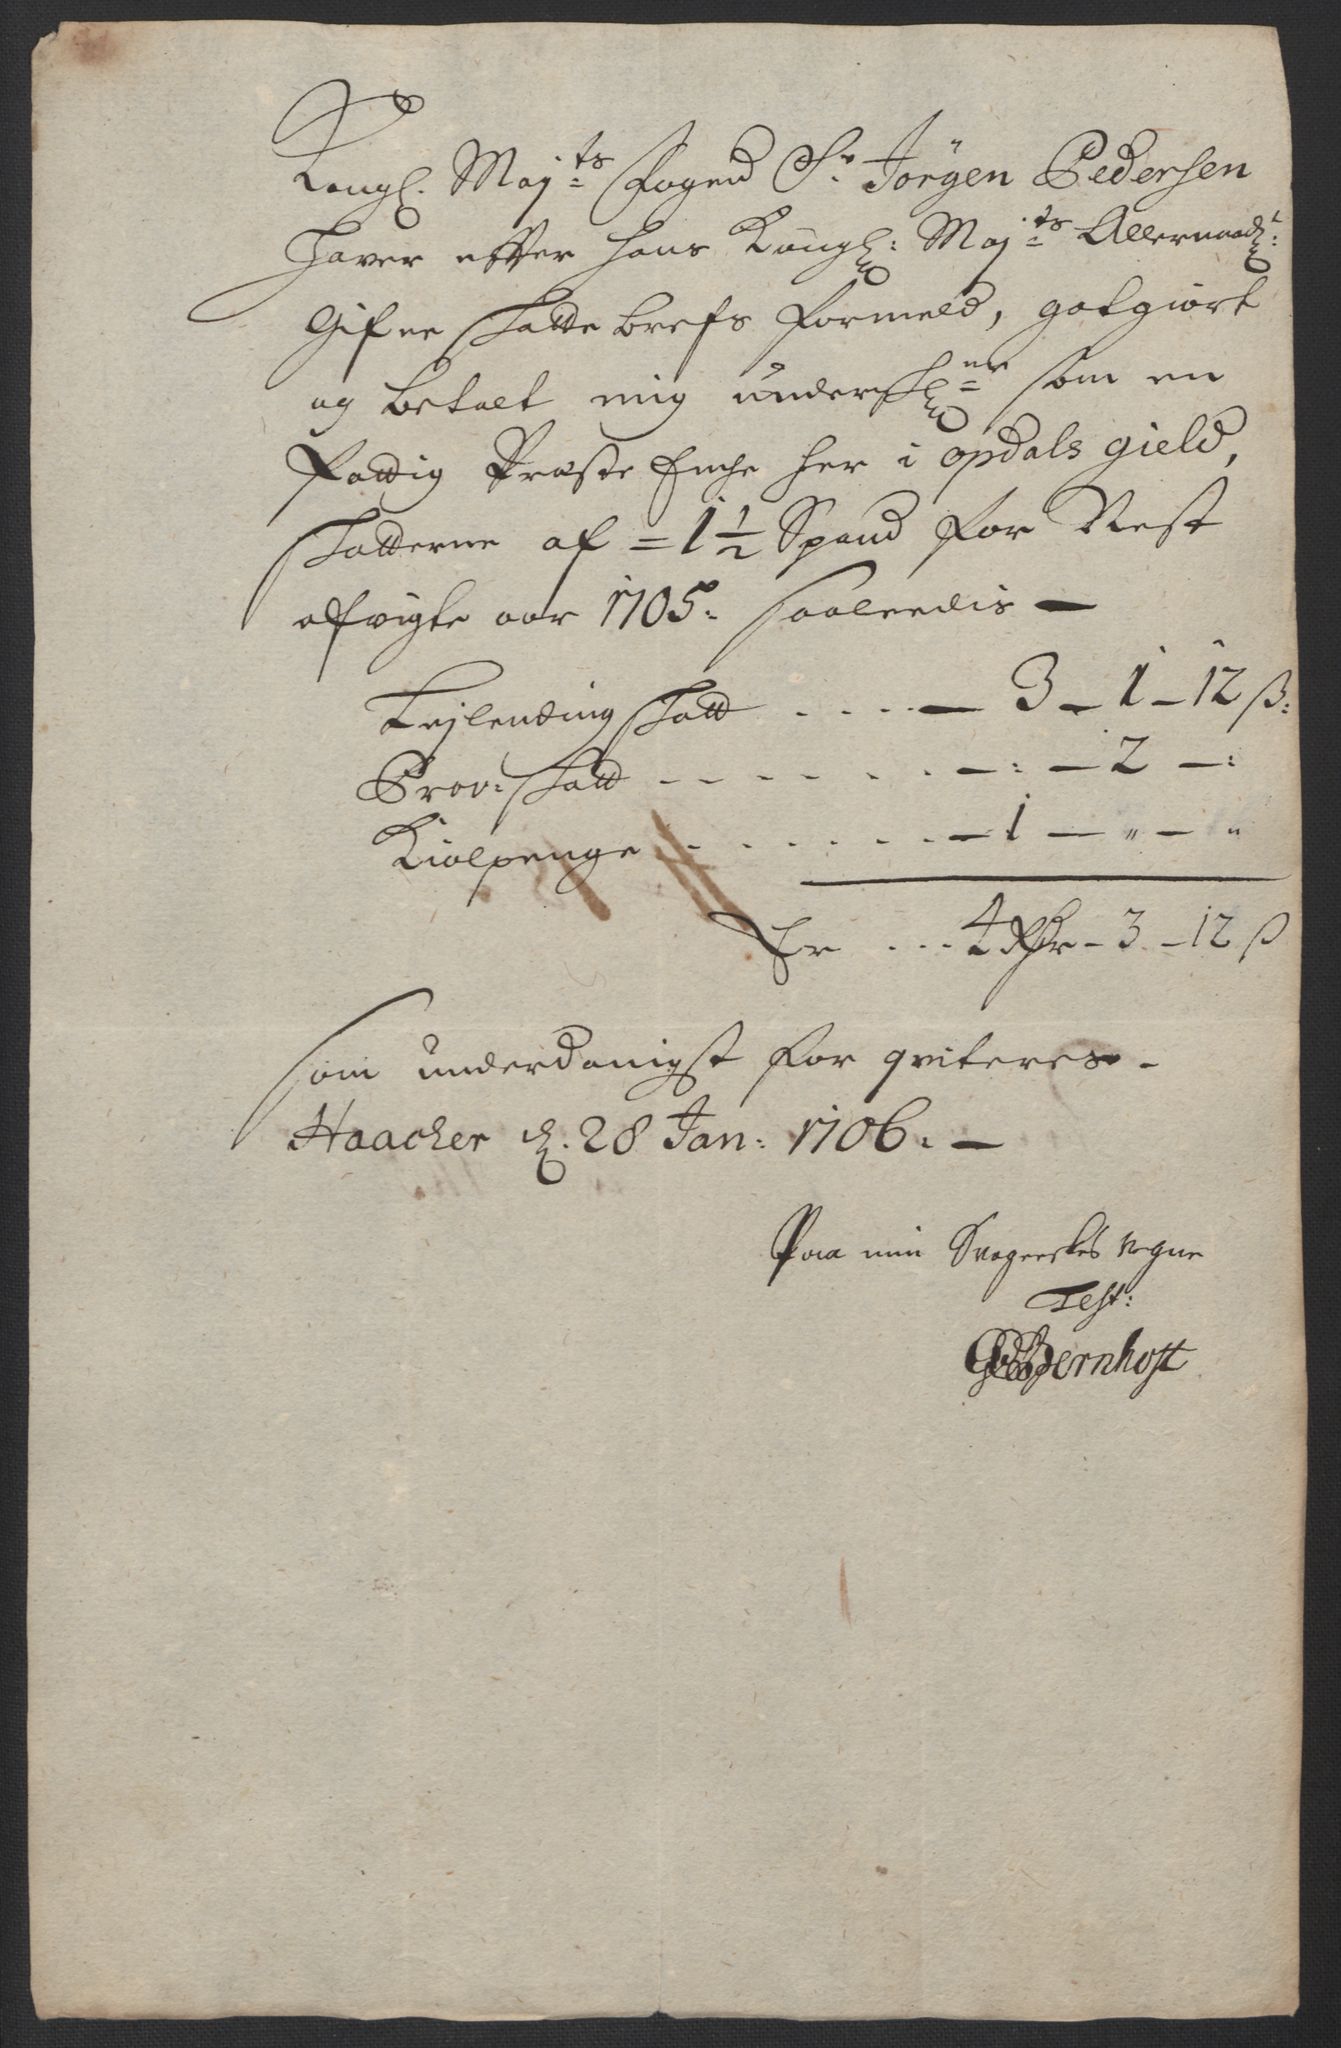 Kongl. Maj:ts Foged Sr Jörgen Pedersen
Haver efter Hans Kongl: Maj:ts Allernaad:
Gifne Skatte brefs formeld, gotgiort
og betalt mig undersch:ne som en
Fattig Præste Enche her i Opdals gield,
Skatterne af = 1 1/2 Spand for Nest
afvigte aar 1705. saaleedis —
Lejlending skatt . . . . — 3 – 1 – 12 ß:
Prov: skatt - - - - . . - — : — 2 — :
Kiolpenge - - - - . . . — 1 — " — "
Er . . . 4 Rdr – 3 – 12 ß
som underdanigst for qviteres –
Haacker d. 28 Jan: 1706. —
Paa min Svogerskes vegne
Test:
Bernhoft